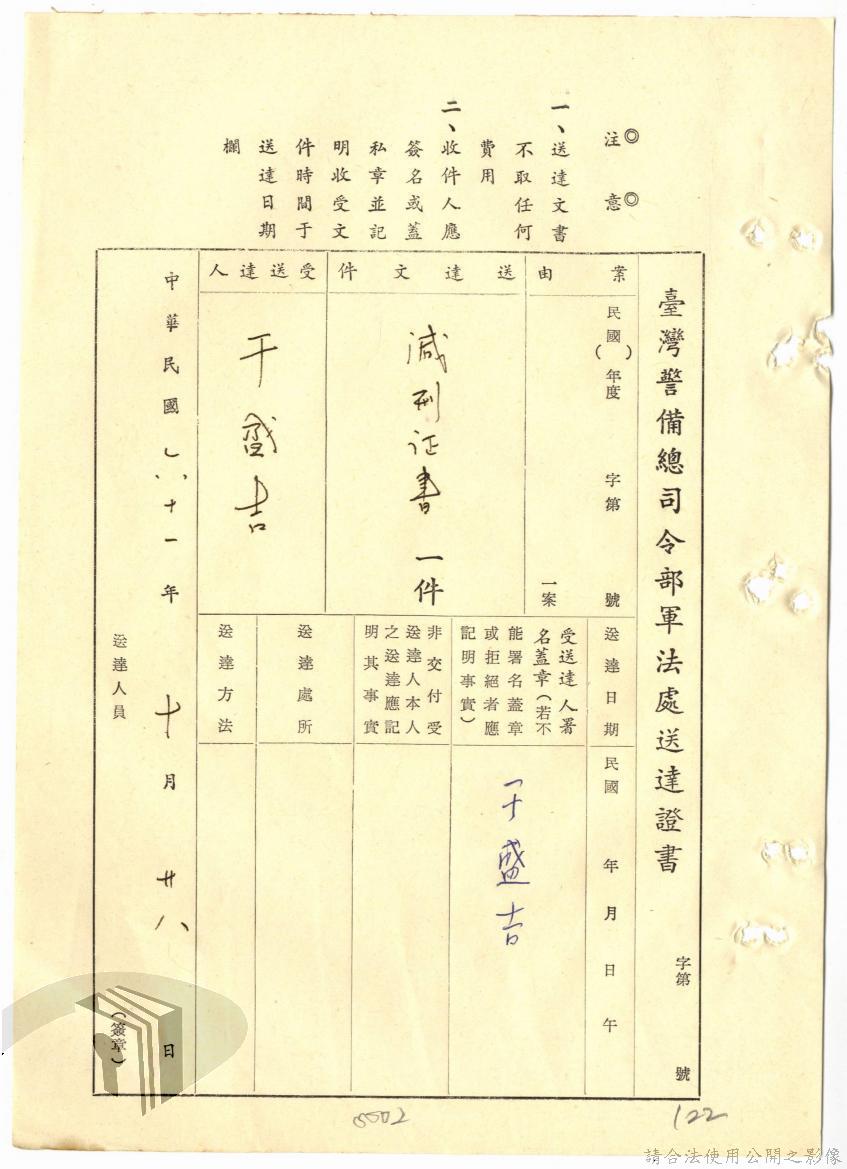 ◎注　意◎
一、送達文書
不取任何
費用
二、收件人應
簽名或蓋
私章並記
明收受文
件時間于
送達日期
欄
臺灣警備總司令部軍法處送達證書　字第　號
案由
民國（　）年度　字第　號
一案
送達文件
減刑证書一件
受送達人
于盛吉
送達日期
民國　年　月　日　午
受送達人署
名蓋章（若不
能署名蓋章
或拒絕者應
記明事實）
于盛吉
非交付受
送達人本人
之送達應記
明其事實
送達處所
送達方法
中華民國六十一年十月廿八日
送達人員　（簽章）
0002
122
請合法使用公開之影像